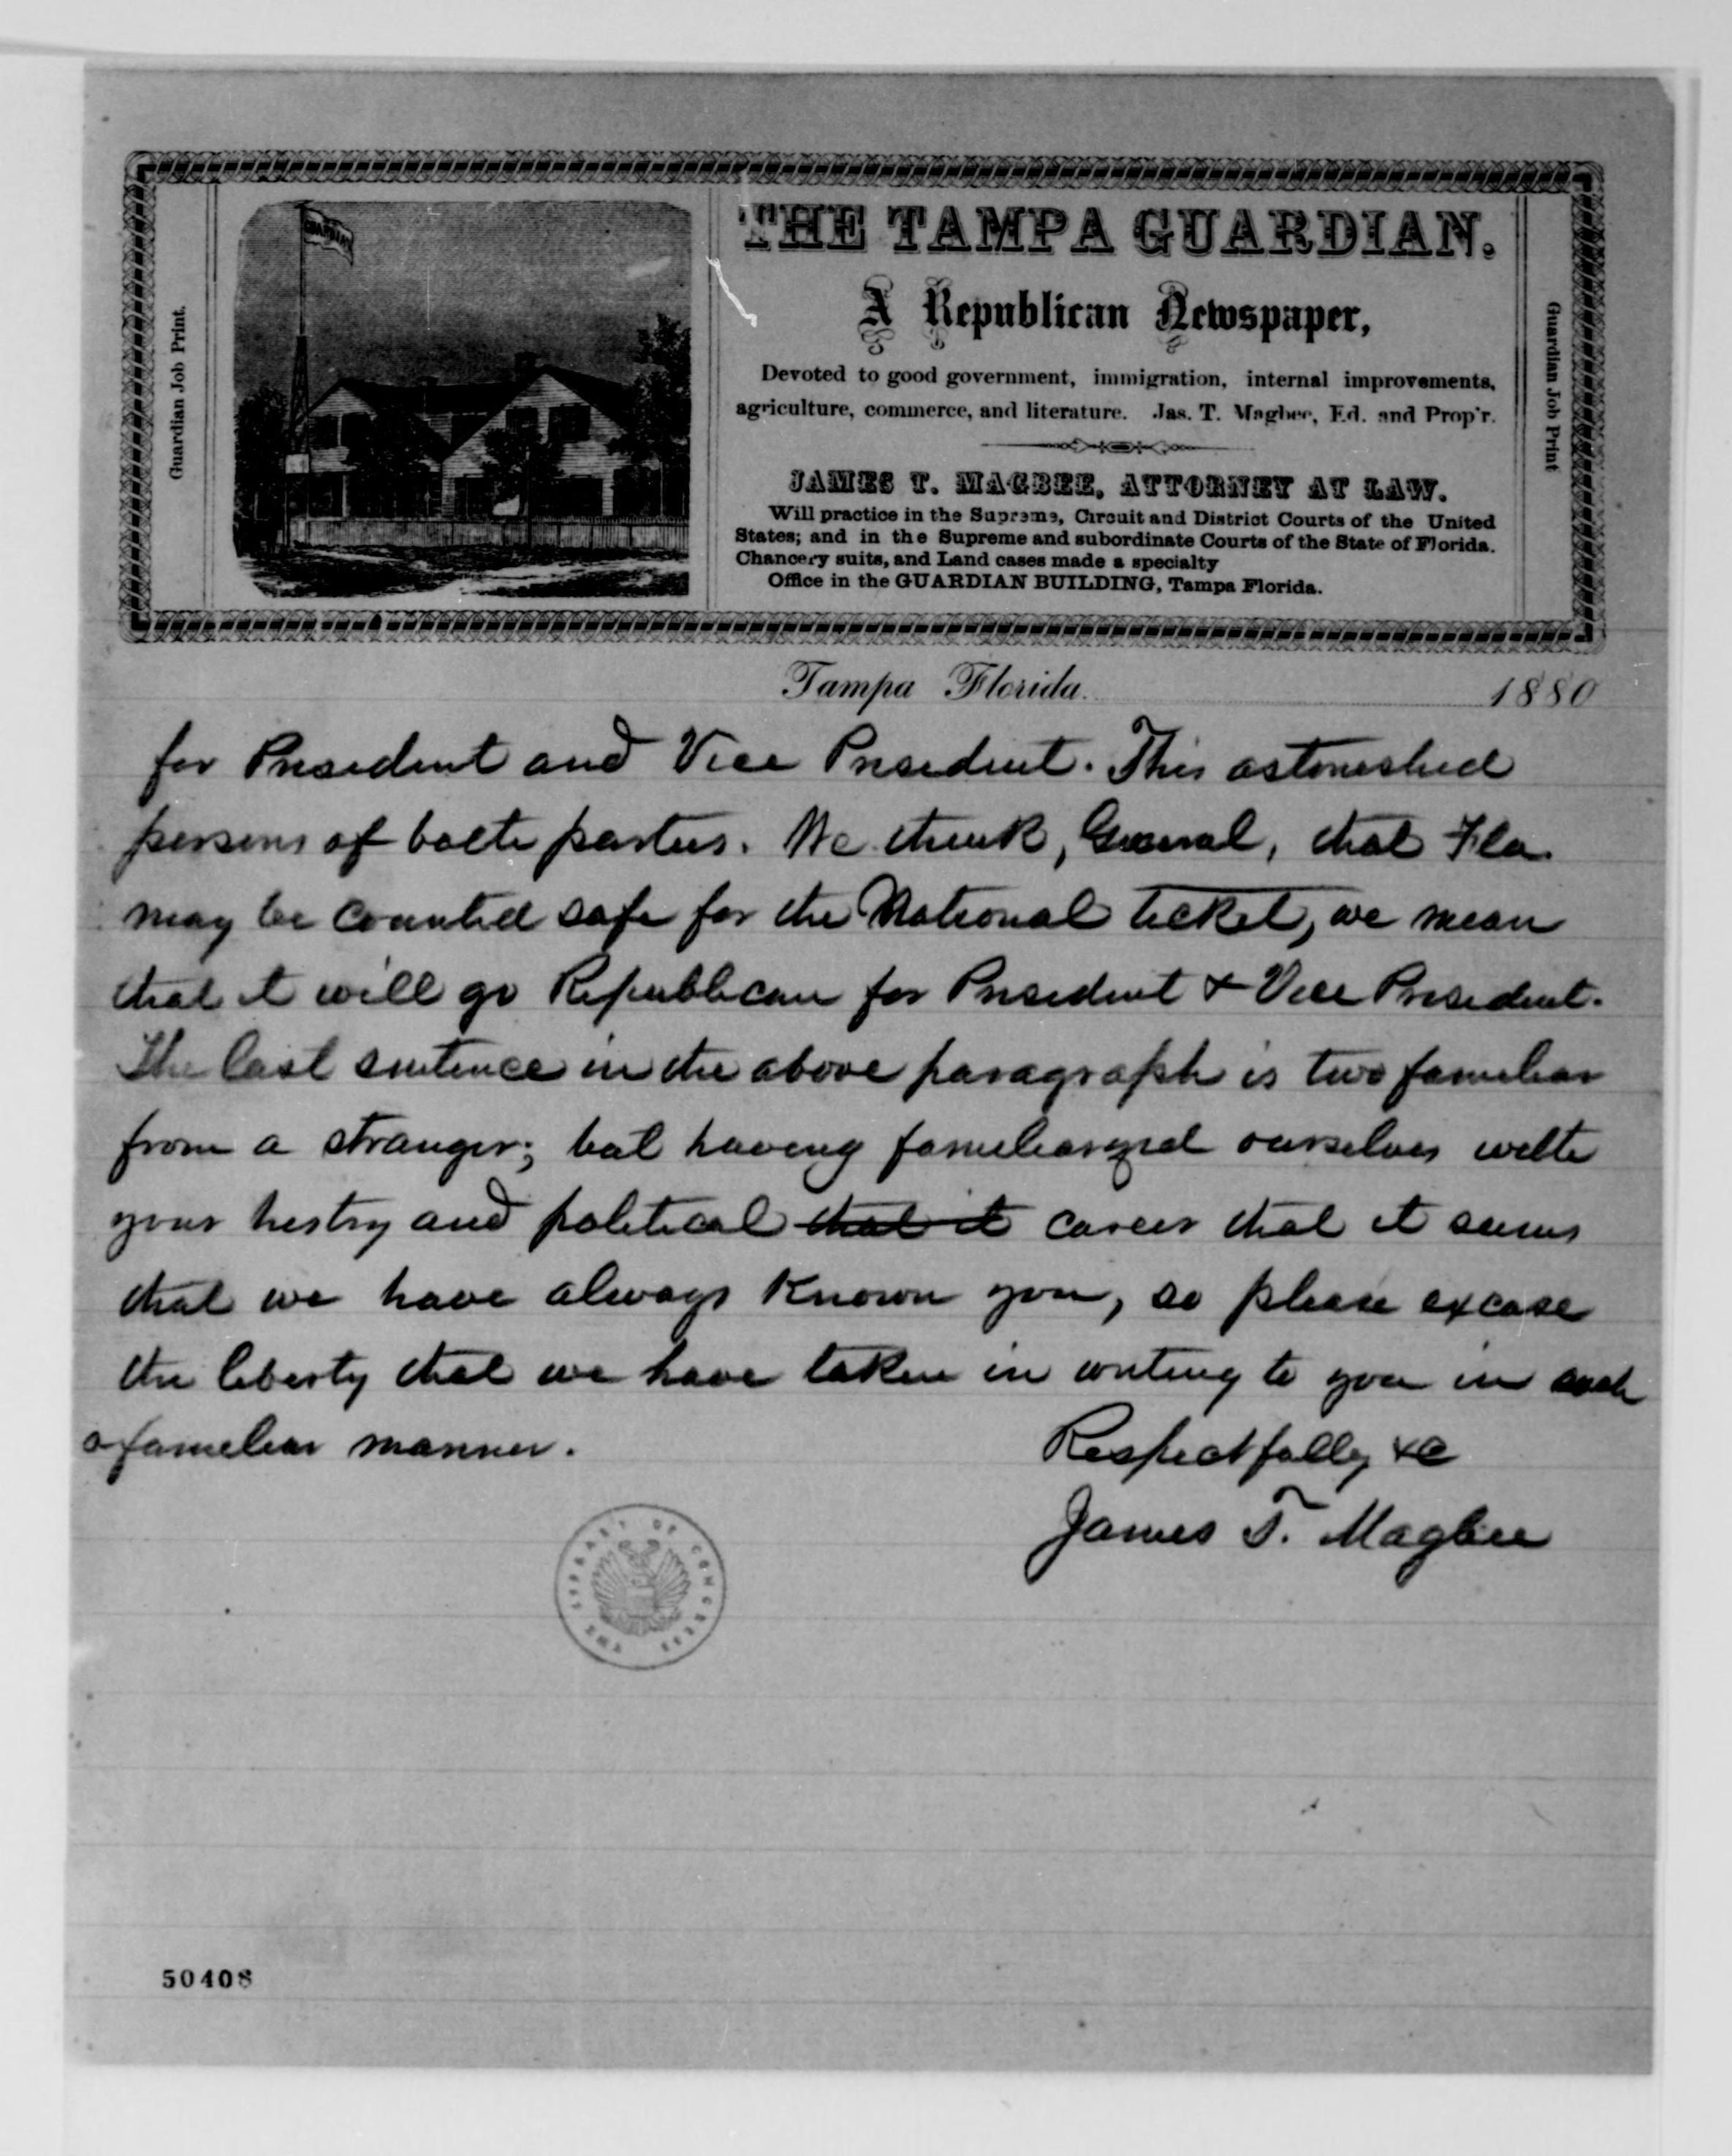 THE TAMPA GUARDIAN.
A Republican Newspaper,
Devoted to good government, immigration, internal improvements,
agriculture, commerce, and literature. Jas. T. Magbee, Ed. and Prop'r.
JAMES T. MAGBEE, ATTORNEY AT LAW.
Will practice in the Supreme, Circuit and District Courts of the United
States; and in the Supreme and subordinate Courts of the State of Florida.
Chancery suits, and Land cases made a specialty
Office in the GUARDIAN BUILDING, Tampa Florida.
Guardian Job Print.
Guardian Job Print
GUARDIAN
Tampa Florida. 1880
for President and Vice President. This astonished
persons of both parties. We think, General, that Fla.
may be counted safe for the National ticket, we mean
that it will go Republican for President & Vice President.
The last sentence in the above paragraph is two familiar
from a stranger; but having familiarized ourselves with
your histry and political that it career that it seems
that we have always known you, so please excuse
the liberty that we have taken in writing to you in such
a familiar manner.
Respectfully &c
James T. Magbee
THE LIBRARY OF CONGRESS
50408